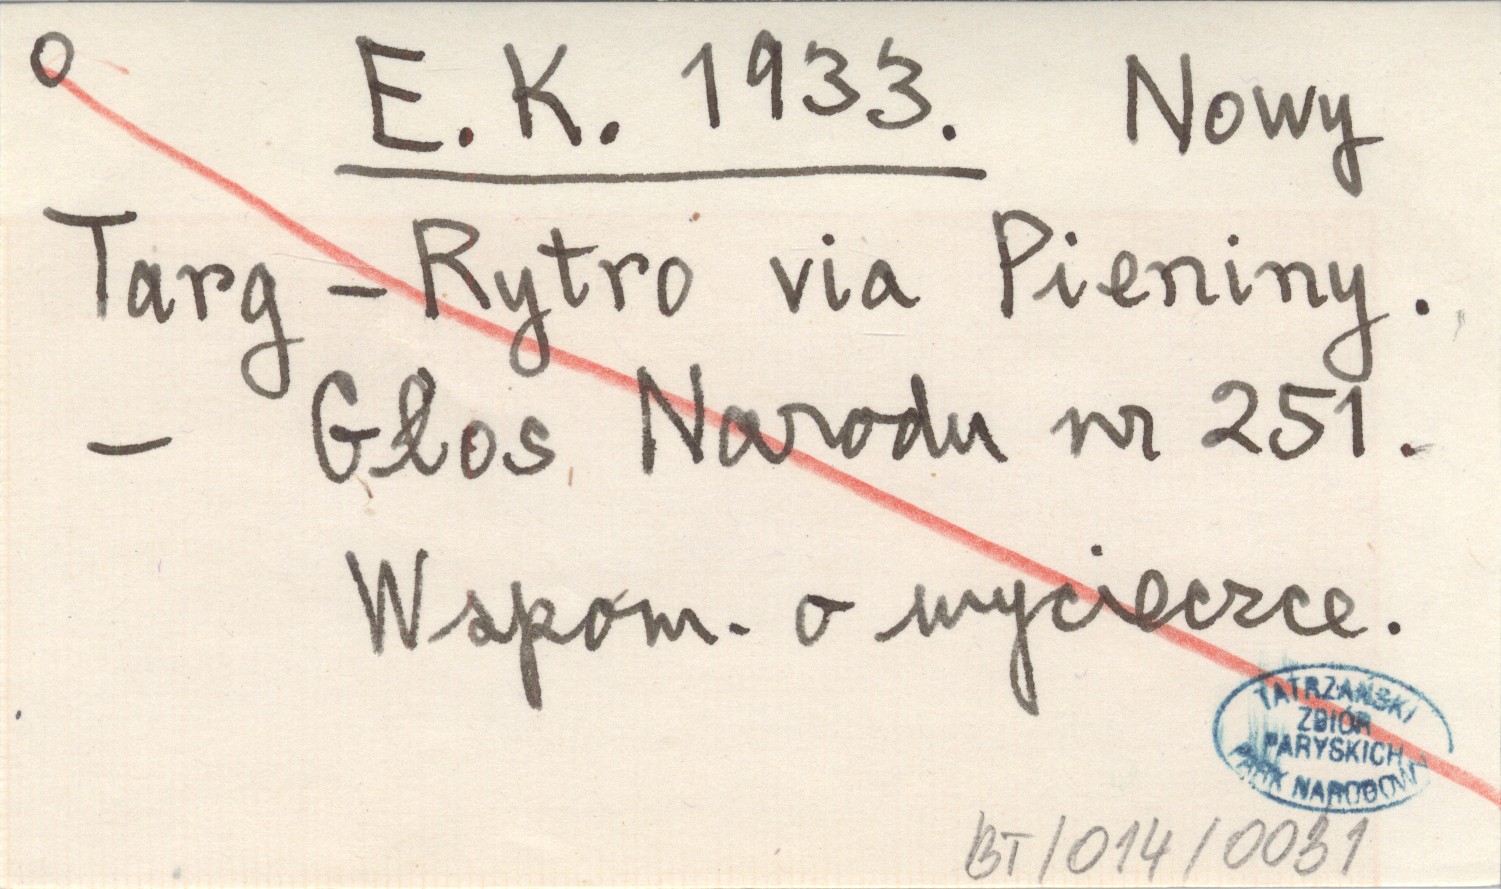 O E. K. 1933. Nowy
Targ – Rytro via Pieniny.
– Głos Narodu nr 251.
Wspom. o wycieczce.
TATRZAŃSKI
ZBIÓR
PARYSKICH
PARK NARODOWY
BT/014/0031